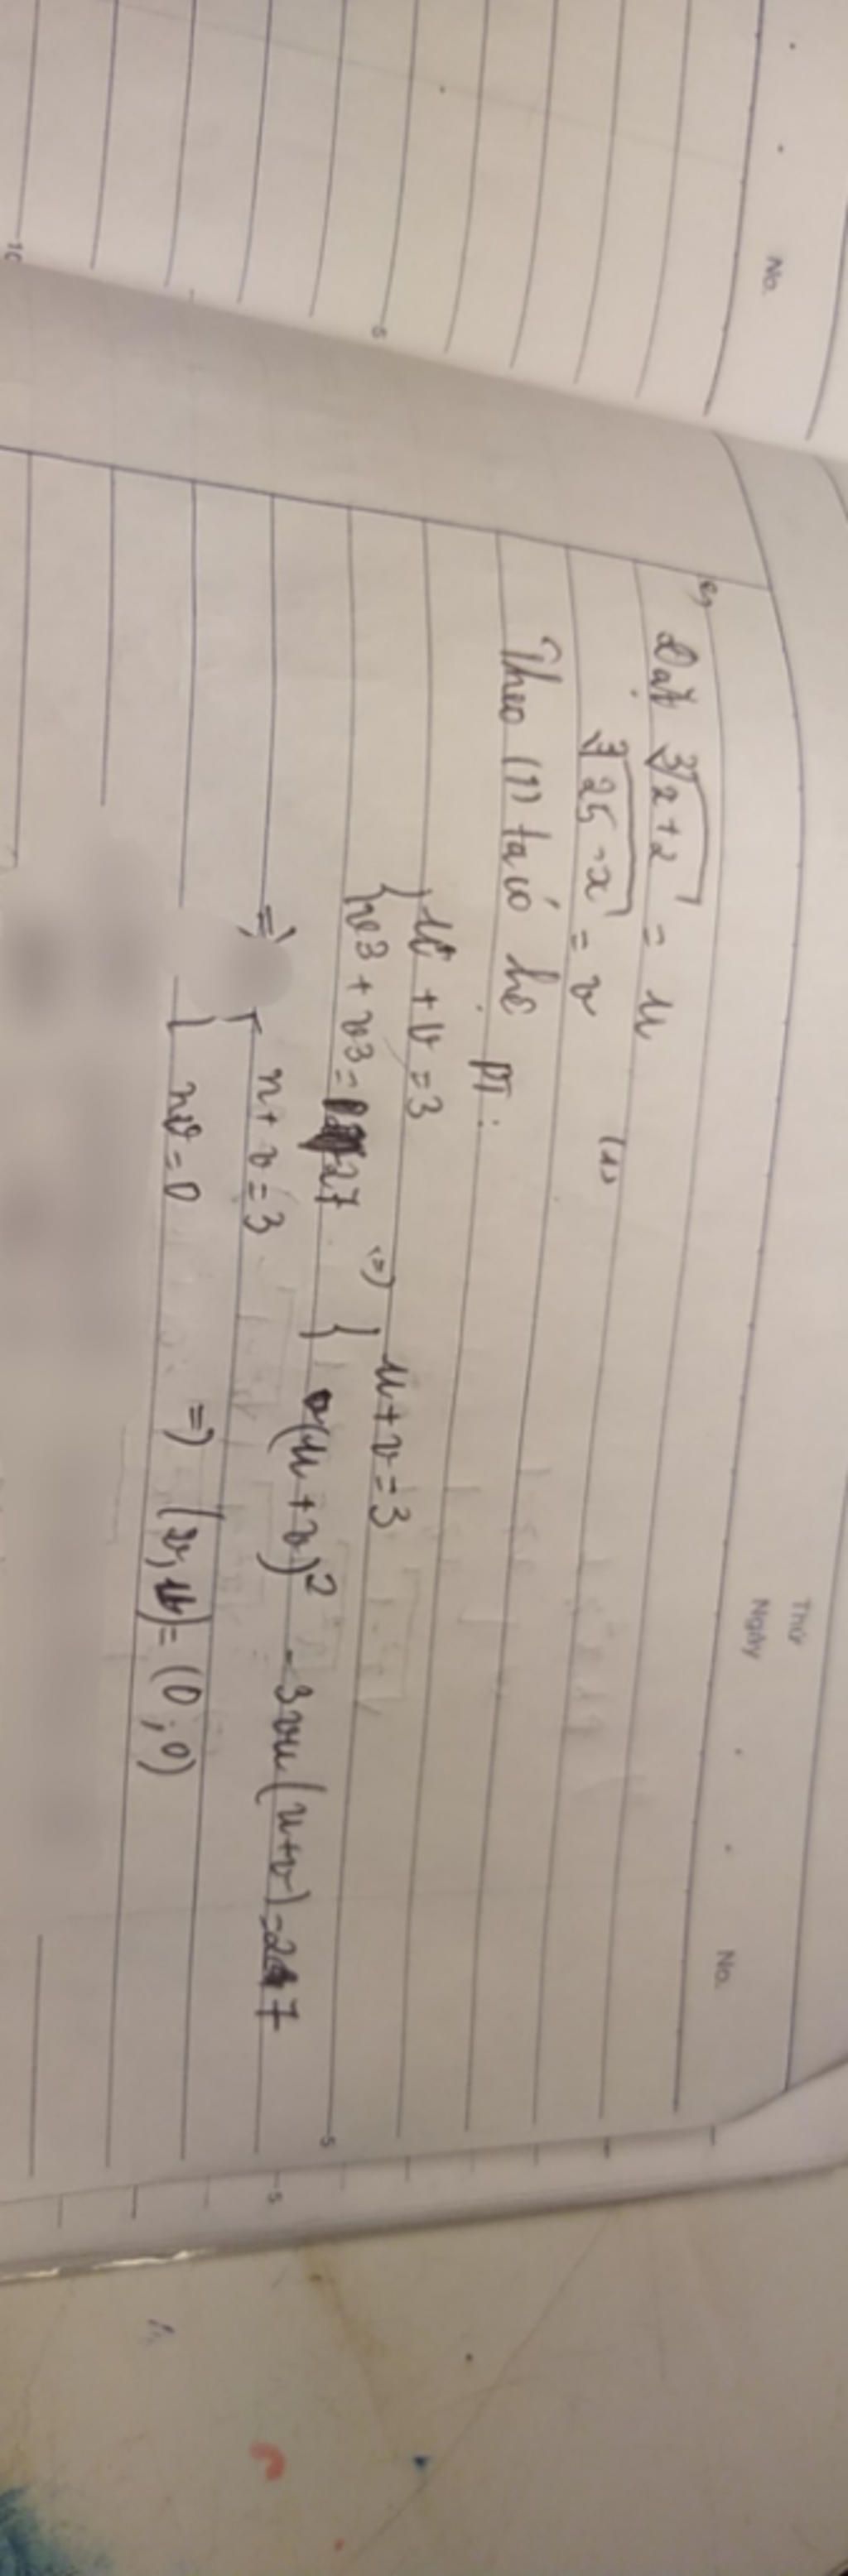 No.
Thứ
Ngày
No.
e, Đặt ∛x+2 = u
∛25-x = v (1)
Theo (1) ta có hệ PT:
{ u + v = 3
{ u3 + v3 = 27 (=) { u + v = 3
{ (u + v)2 - 3vu (u+v) = 27
=) { u + v = 3
{ uv = 0 =) (v, u) = (0 ; 0)
5
5
6
10